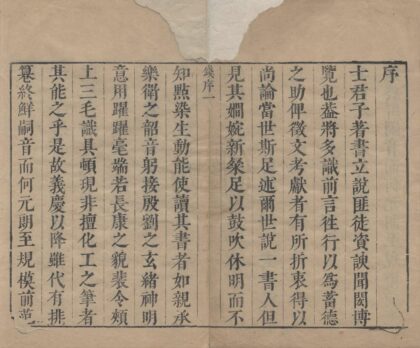 序
士君子著書立說匪徒資諛聞閎博
覽也葢將多識前言徃行以為蓄德
之助俾徵文考獻者有所折衷得以
尚論當世斯足述爾世說一書人但
見其嫺婉新粲足以鼓吹休明而不
錢序一
知㸃染生動能使讀其書者如親承
樂衛之韶音躬接殷劉之玄緒神明
意用躍躍毫端若長康之貌裴令頰
上三毛識具頓現非擅化工之筆者
其能之乎是故義慶以降雖代有排
纂終鮮嗣音而何元朗至規模前